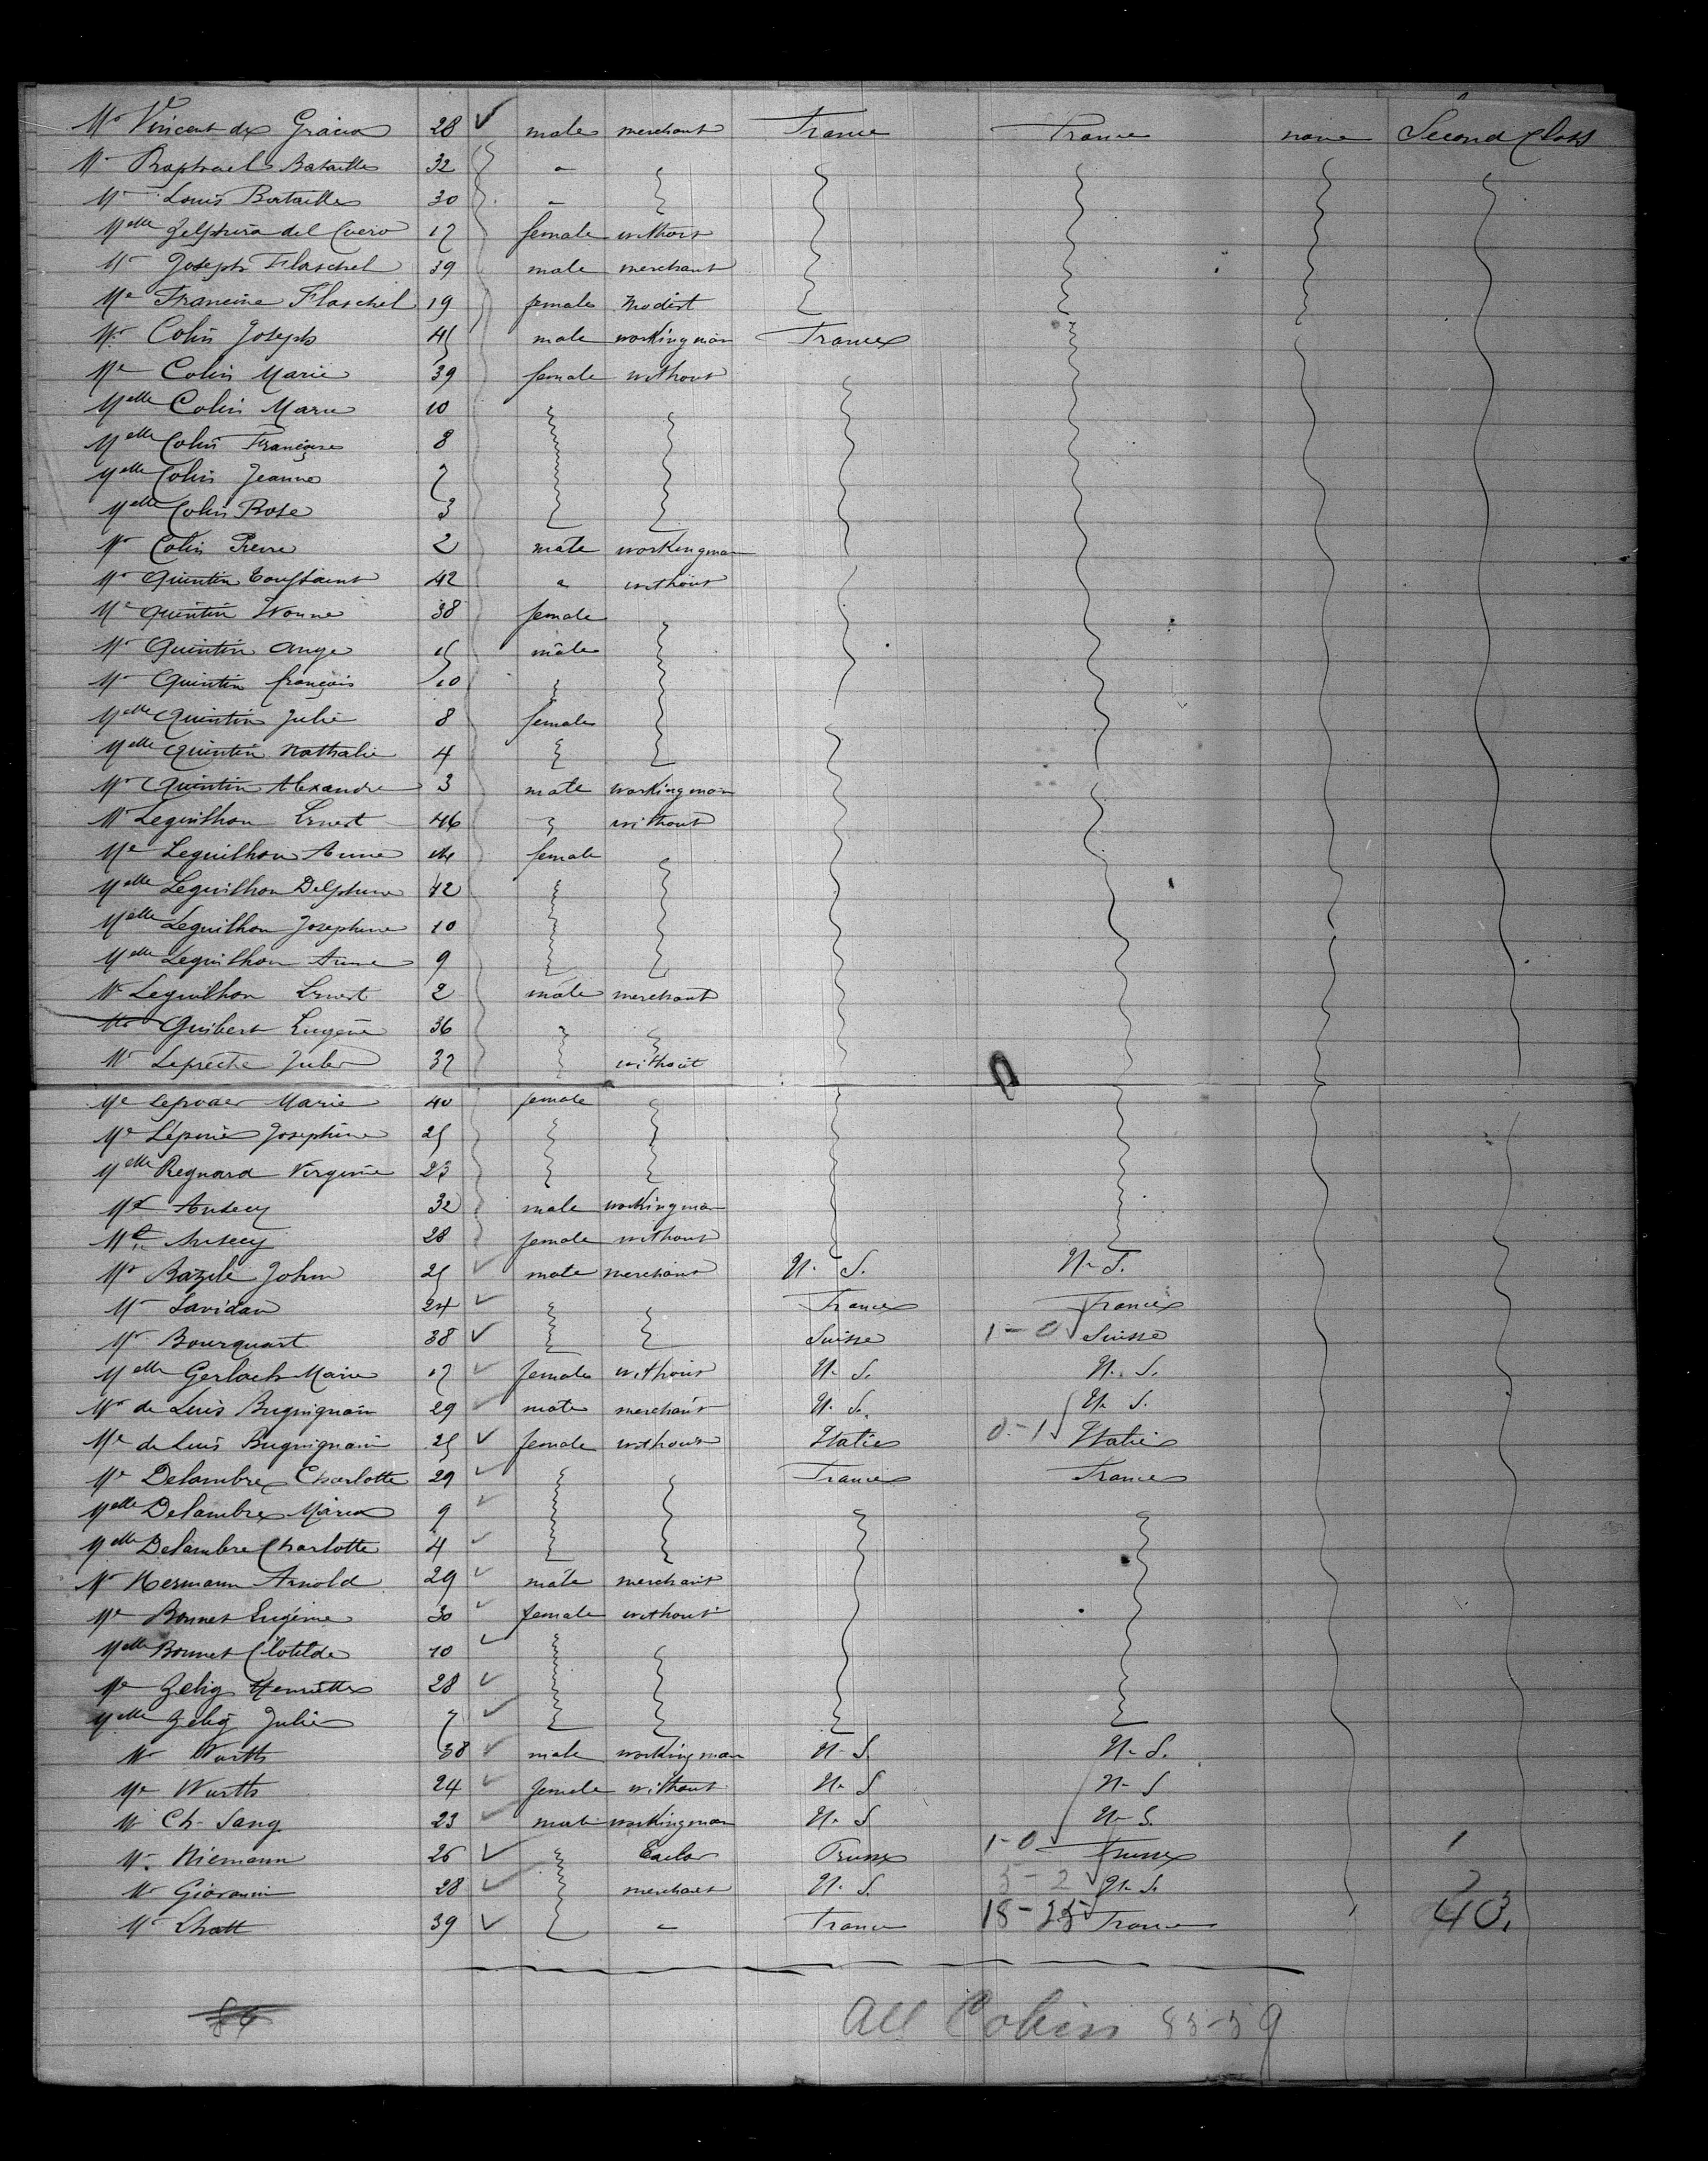 Mr Vincent de Gracia 28 male merchant France France none Second Class
Mr Raphael Bataille 32 "
Mr Louis Bataille 30 "
Melle Zelphira del Cuero 17 female without
Mr Joseph Flaschel 39 male merchant
Me Francine Flaschel 19 female Modist
Mr Colin Joseph 45 male workingman France
Me Colin Marie 39 female without
Melle Colin Marie 10
Melle Colin Françoise 8
Melle Colin Jeanne 7
Melle Colin Rose 3
Mr Colin Pierre 2 male workingman
Mr Quintin Toussaint 42 " without
Me Quintin Yvonne 38 female
Mr Quintin Ange 15 male
Mr Quintin françois 10
Melle Quintin Julie 8 female
Melle Quintin Nathalie 4
Mr Quintin Alexandre 3 male workingman
Mr Leguilhon Ernest 46 without
Me Leguilhon Anne female
Melle Leguilhon Delphine 12
Melle Leguilhon Josephine 10
Melle Leguilhon Anne 9
Mr Leguilhon Ernest 2 male merchant
Mr Guibert Eugène 36
Mr Lepreche Jules 37 without
Me Marie 40 female
Me Josephine 25
Melle Regnard Virginie 23
Mr Ansecy 32 male workingman
Me Ansecy 28 female without
Mr Bazile John 25 male merchant U. S. U. S.
Mr Lavidan 24 France France
Mr Bourquart 38 Suisse 1-0 Suisse
Melle Gerlach Marie 17 female without U. S. U. S.
Mr de Luis Buguignain 29 male merchant U. S. U. S.
Me de Luis Buguignain 25 female without Italie 0-1 Italie
Me Delambre Charlotte 29 France France
Melle Delambre Maria 9
Melle Delambre Charlotte 4
Mr Hermann Arnold 29 male merchant
Me Bonnet Eugénie 30 female without
Melle Bonnet Clotilde 10
Me Zelig Henriette 28
Melle Zelig Julie 7
Mr Wurth 38 male workingman U. S. U. S.
Me Wurth 24 female without U. S U. S
Mr Ch. Sang 23 male workingman U. S U. S.
Mr Niemann 26 Prusse 1-0 Prusse 1
Mr Giovanni 28 merchant U. S. 5-2 U. S.
Mr Khatt 39 " France 18-25 France 40
84 All Cabin 55-59